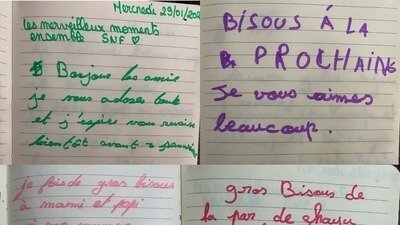 Mercredi 29/01/202
Les merveilleux moments
ensemble SNF ♡
Bonjour les amis
je vous adores tout
et j'espère vous revoir
bientôt avant
BISOUS À LA
PROCHAINE
Je vous aimes
beaucoup.
je fais de gros bisous
à mamie et papi
gros Bisous de
la par de